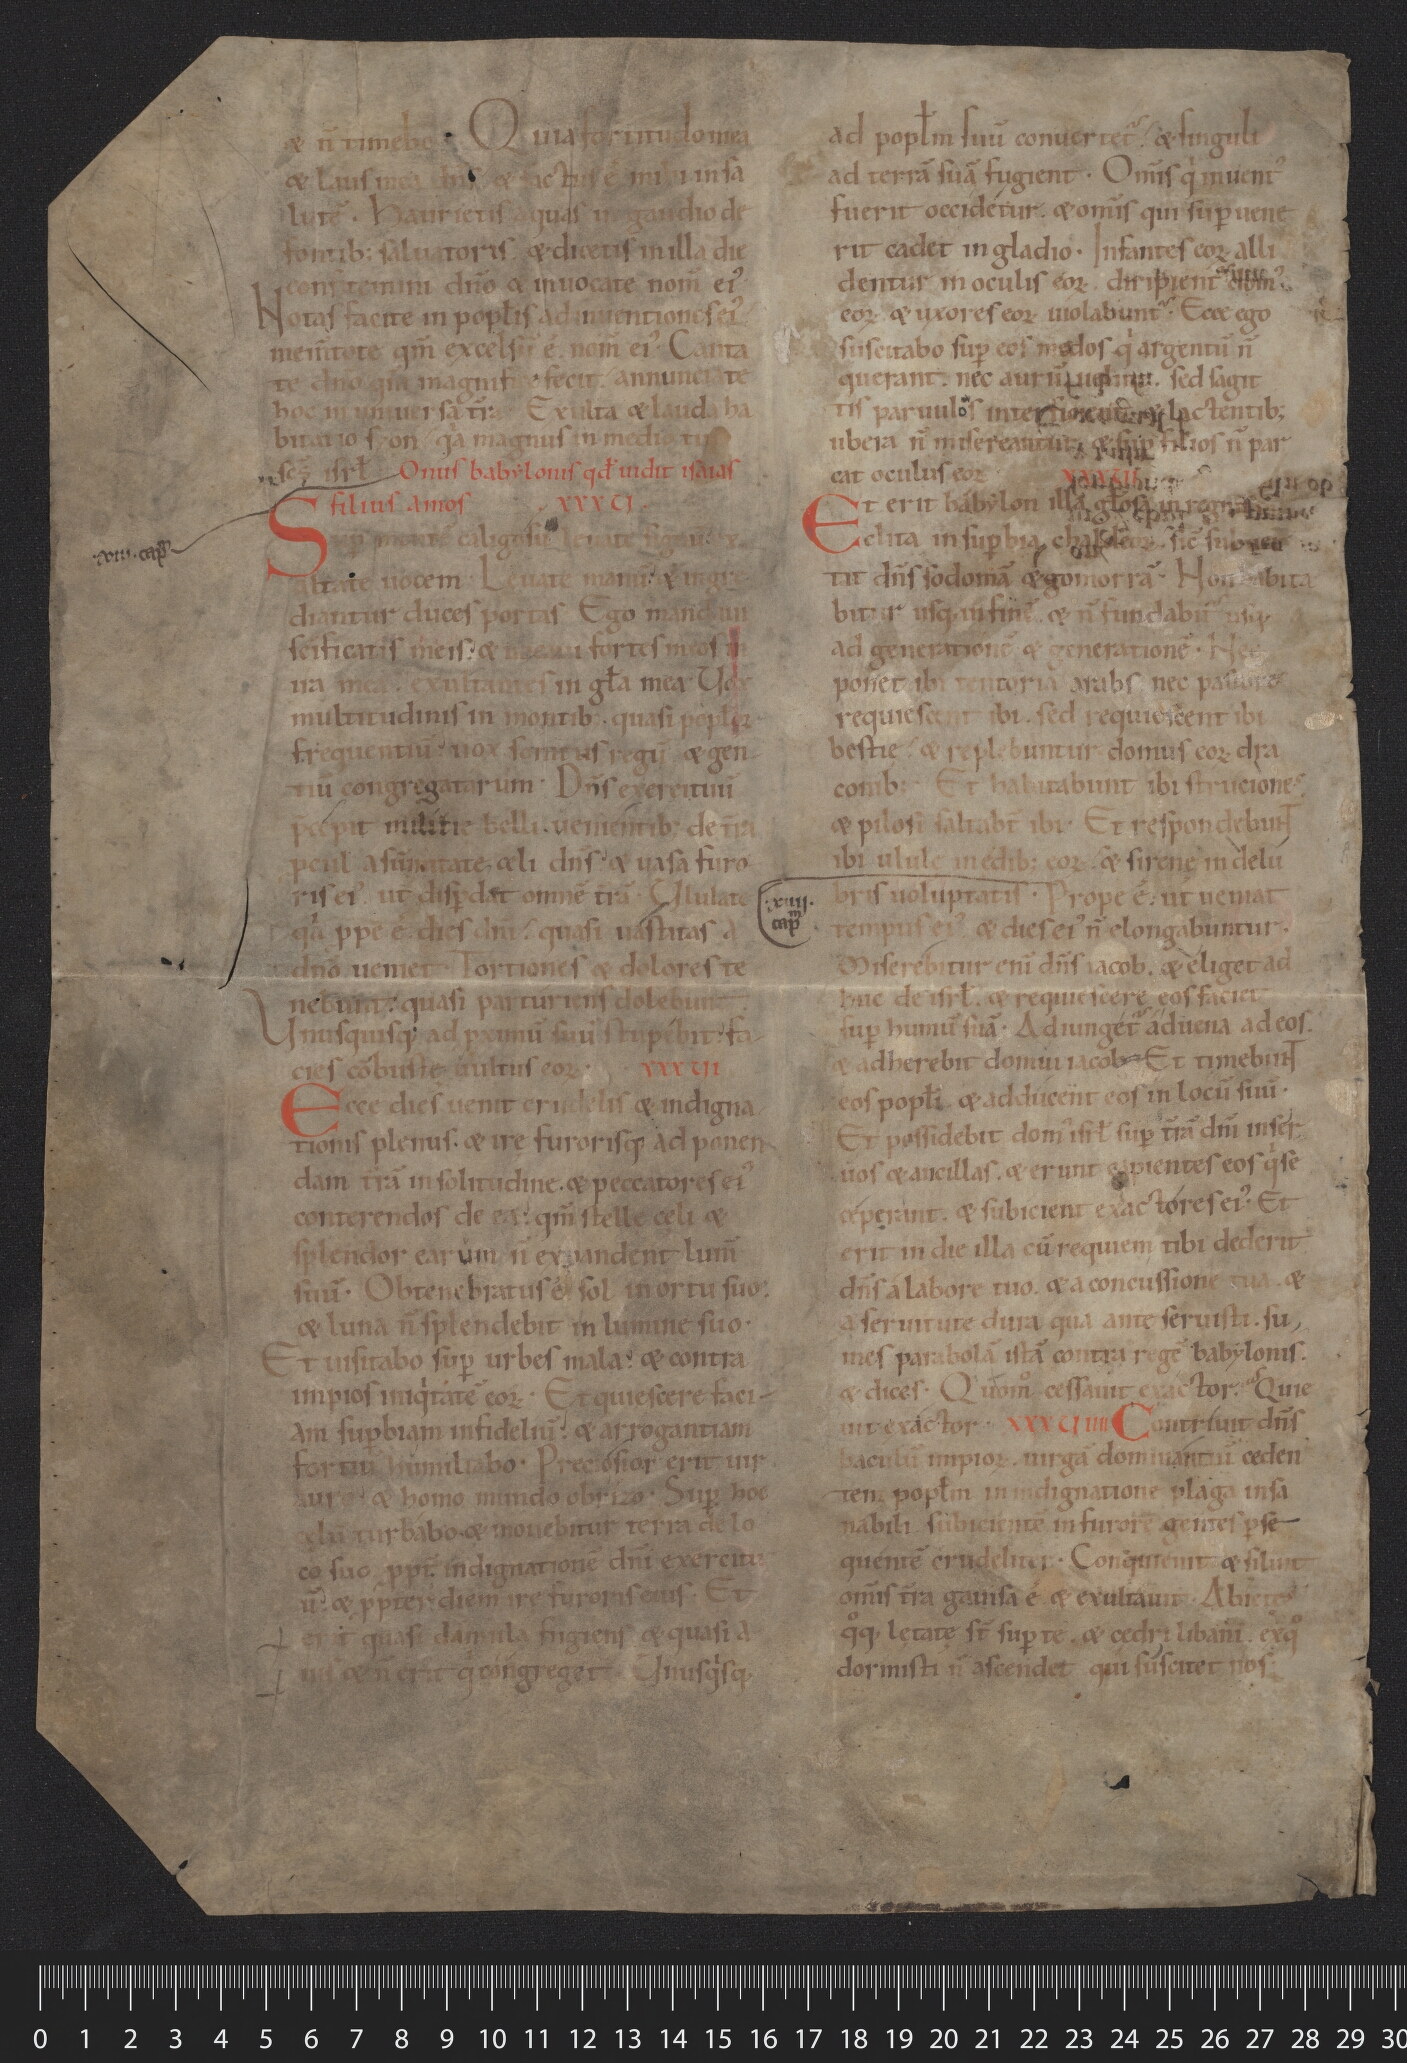 & n̄ timebo. Quia fortitudo mea
& laus mea dn̄s. & factus ē mihi in sa
lutē. Haurietis aquas in gaudio de
fontib; saluatoris. & dicetis in illa die
confitemini dn̄o & inuocate nom̄ eiꝰ
Notas facite in popl̄is adinuentiones eiꝰ
mem̄tote qm̄ excelsū ē nom̄ eiꝰ. Canta
te dn̄o qm̄ magnifice fecit. annunciate
hoc in uniuersa t̄ra. Exulta & lauda ha
bitatio syon. q̄a magnus in medio tui
sc̄s isrl̄. Onus babylonis qd̄ uidit isaias
filius amos XXXVI
.xiii. cap̄
Sup̄ montē caligosū leuate signū. ex
altate uocem. Leuate manū. & ingre
diantur duces portas. Ego mandaui
sc̄ificatis meis. & uocaui fortes meos in
ira mea. exultantes in gl̄a mea. Vox
multitudinis in montib;. quasi popl̄oꝝ
frequentiū. uox sonitus regū & gen
tiū congregatarum. Dn̄s exercituū
p̄cepit militie belli. uenientib; de t̄ra
ꝓcul. a sūmitate celi dn̄s. & uasa furo
ris eiꝰ. ut disp̄dat omnē t̄rā. Vlulate
q̄a ꝓpe ē dies dn̄i. quasi uastitas a
dn̄o ueniet. Tortiones & dolores te
nebunt. quasi parturiens dolebunt.
Vnusquisq; ad ꝓximū suū stupebit. fa
cies cōbuste uultus eoꝝ. XXXVII
Ecce dies uenit crudelis & indigna
tionis plenus. & ire furorisq; ad ponen
dam t̄rā in solitudine. & peccatores eiꝰ
conterendos de ea. qm̄ stelle celi &
splendor earum n̄ expandent lum̄
suū. Obtenebratus ē sol in ortu suo.
& luna n̄ splendebit in lumine suo.
Et uisitabo sup̄ urbes mala. & contra
impios iniq̄tatē eoꝝ. Et quiescere faci
am sup̄biam infideliū. & arrogantiam
fortiū humiliabo. Preciosior erit uir
auro. & homo mundo obrizo. Sup̄ hoc
celū turbabo. & mouebitur terra de lo
co suo. ꝓpt̄ indignationē dn̄i exercitu
ū. & ꝓpter diem ire furoris eius. Et
erit quasi damula fugiens. & quasi o
uis. & n̄ erit q̄ congreget. Vnusq̄sq;
ad popl̄m suū conuertet̄. & singuli
ad terrā suā fugient. Om̄is q̄ inuentꝰ
fuerit occidetur. & om̄is qui sup̄uene
rit cadet in gladio. Infantes eoꝝ alli
dentur in oculis eoꝝ. diripient̄ domꝰ
eoꝝ. & uxores eoꝝ uiolabunt̄. Ecce ego
suscitabo sup̄ eos medos q̄ argentū n̄
querant. nec aurū uelint. sed sagit
tis paruulos interficient. & lactentib;
ubera n̄ misereantur. & sup̄ filios n̄ par
cat oculus eoꝝ XXXVIII
Et erit babylon illa gl̄osa in regnis
Eclita in sup̄bia chaldeoꝝ. sic̄ subuer
tit dn̄s sodomā & gomorrā. Non habita
bitur usq; in finē. & n̄ fundabit̄ usq;
ad generationē & generationē. Nec
ponet ibi tentoria arabs. nec pastores
requiescent ibi. sed requiescent ibi
bestie. & replebuntur domus eoꝝ dra
conib;. Et habitabunt ibi struciones
& pilosi saltabt̄ ibi. Et respondebunt
ibi ulule in edib; eoꝝ. & sirenę in delu
.xiiii. cap̄m
bris uoluptatis. Prope ē. ut ueniat
tempus eiꝰ. & dies eiꝰ n̄ elongabuntur.
Miserebitur eni dn̄s iacob. & eliget ad
huc de isrl̄. & requiescere eos faciet
sup̄ humū suā. Adiunget̄ aduena ad eos.
& adherebit domui iacob. Et tenebunt
eos popl̄i. & adducent eos in locū suū.
Et possidebit domꝰ isrl̄ sup̄ t̄rā dn̄i in ser
uos & ancillas. & erunt capientes eos q̄ se
ceperant. & subicient exactores eiꝰ. Et
erit in die illa cū requiem tibi dederit
dn̄s a labore tuo. & a concussione tua. &
a seruitute dura qua ante seruisti. su
mes parabolā istā contra regē babylonis.
& dices. Quom̊ cessauit exactor. Quie
uit exactor. XXXVIIII Contriuit dn̄s
baculū impioꝝ. uirgā dominantiū ceden
tem popl̄m in indignatione plaga insa
nabili. subicientē in furore gentes ꝑse
quentē crudeliter. Conquieuit & siluit
om̄is t̄ra gauisa ē & exultauit. Abietes
q̊q; letate st̄ sup̄ te. & cedri libani. ex q̊
dormisti n̄ ascendet qui succidet nos.